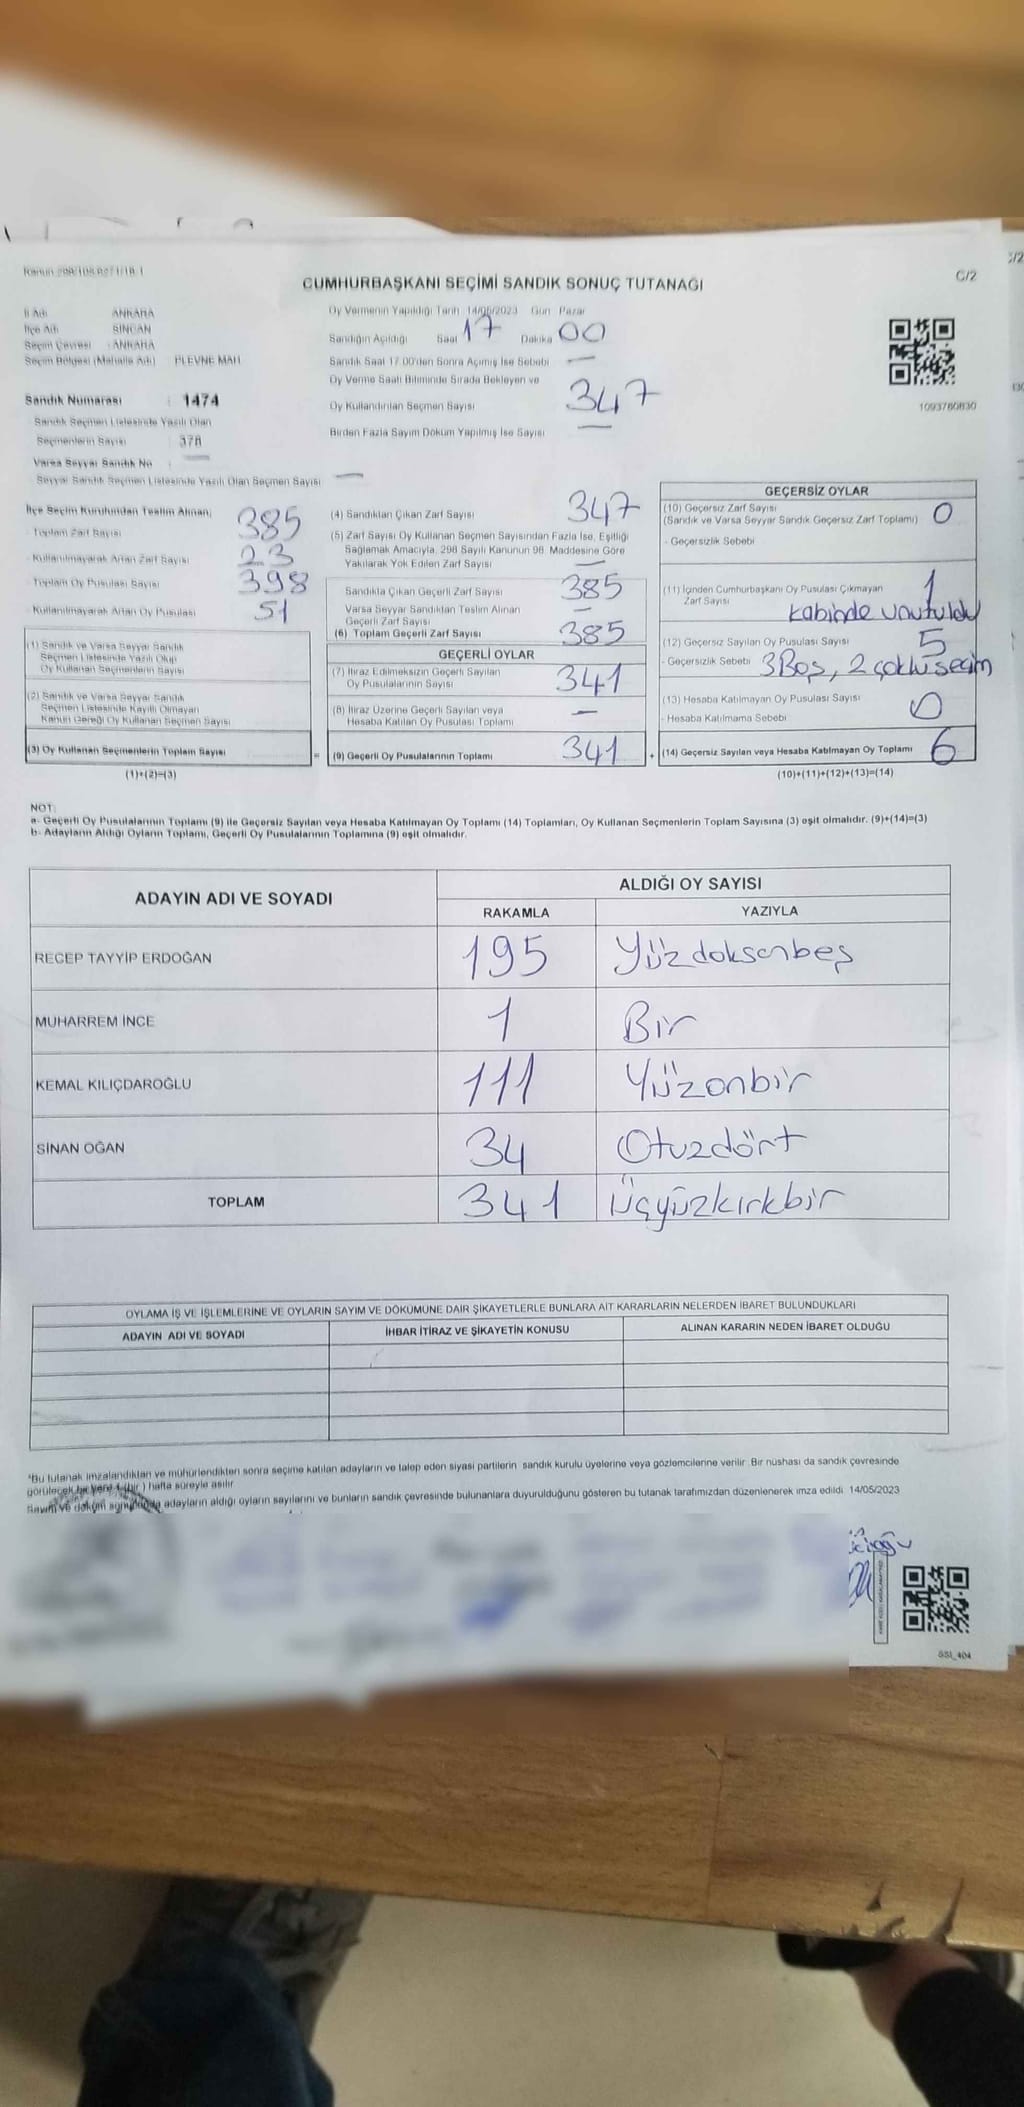 CUMHURBAŞKANI SEÇİMİ SANDIK SONUÇ TUTANAĞI
C/2
İl Adı : ANKARA
İlçe Adı : SİNCAN
Seçim Çevresi : ANKARA
Seçim Bölgesi (Mahalle Adı) : PLEVNE MAH.
Sandık Numarası : 1474
Sandık Seçmen Listesinde Yazılı Olan
Seçmenlerin Sayısı : 378
Varsa Seyyar Sandık No : —
Seyyar Sandık Seçmen Listesinde Yazılı Olan Seçmen Sayısı —
Oy Vermenin Yapıldığı Tarih 14/05/2023 Gün Pazar
Sandığın Açıldığı Saat 17 Dakika 00
Sandık Saat 17.00'den Sonra Açımış İse Sebebi —
Oy Verme Saati Bitiminde Sırada Bekleyen ve
Oy Kullandırılan Seçmen Sayısı 347
Birden Fazla Sayım Döküm Yapılmış İse Sayısı —
1093760830
İlçe Seçim Kurulundan Teslim Alınan;
- Toplam Zarf Sayısı 385
- Kullanılmayarak Artan Zarf Sayısı 23
- Toplam Oy Pusulası Sayısı 398
- Kullanılmayarak Artan Oy Pusulası 51
(1) Sandık ve Varsa Seyyar Sandık
Seçmen Listesinde Yazılı Olup
Oy Kullanan Seçmenlerin Sayısı
(2) Sandık ve Varsa Seyyar Sandık
Seçmen Listesinde Kayıtlı Olmayan
Kanun Gereği Oy Kullanan Seçmen Sayısı
(3) Oy Kullanan Seçmenlerin Toplam Sayısı =
(1)+(2)=(3)
(4) Sandıktan Çıkan Zarf Sayısı 347
(5) Zarf Sayısı Oy Kullanan Seçmen Sayısından Fazla İse, Eşitliği
Sağlamak Amacıyla, 298 Sayılı Kanunun 98. Maddesine Göre
Yakılarak Yok Edilen Zarf Sayısı —
Sandıkta Çıkan Geçerli Zarf Sayısı 385
Varsa Seyyar Sandıktan Teslim Alınan
Geçerli Zarf Sayısı —
(6) Toplam Geçerli Zarf Sayısı 385
GEÇERLİ OYLAR
(7) İtiraz Edilmeksizin Geçerli Sayılan
Oy Pusulalarının Sayısı 341
(8) İtiraz Üzerine Geçerli Sayılan veya
Hesaba Katılan Oy Pusulası Toplamı —
(9) Geçerli Oy Pusulalarının Toplamı 341 +
GEÇERSİZ OYLAR
(10) Geçersiz Zarf Sayısı
(Sandık ve Varsa Seyyar Sandık Geçersiz Zarf Toplamı) 0
- Geçersizlik Sebebi
(11) İçinden Cumhurbaşkanı Oy Pusulası Çıkmayan
Zarf Sayısı 1
kabinde unutuldu
(12) Geçersiz Sayılan Oy Pusulası Sayısı 5
- Geçersizlik Sebebi 3 Boş, 2 çoklu seçim
(13) Hesaba Katılmayan Oy Pusulası Sayısı 0
- Hesaba Katılmama Sebebi
(14) Geçersiz Sayılan veya Hesaba Katılmayan Oy Toplamı 6
(10)+(11)+(12)+(13)=(14)
NOT:
a- Geçerli Oy Pusulalarının Toplamı (9) ile Geçersiz Sayılan veya Hesaba Katılmayan Oy Toplamı (14) Toplamları, Oy Kullanan Seçmenlerin Toplam Sayısına (3) eşit olmalıdır. (9)+(14)=(3)
b- Adayların Aldığı Oyların Toplamı, Geçerli Oy Pusulalarının Toplamına (9) eşit olmalıdır.
ADAYIN ADI VE SOYADI ALDIĞI OY SAYISI
RAKAMLA YAZIYLA
RECEP TAYYİP ERDOĞAN 195 Yüzdoksanbeş
MUHARREM İNCE 1 Bir
KEMAL KILIÇDAROĞLU 111 Yüzonbir
SİNAN OĞAN 34 Otuzdört
TOPLAM 341 Üçyüzkırkbir
OYLAMA İŞ VE İŞLEMLERİNE VE OYLARIN SAYIM VE DÖKÜMÜNE DAİR ŞİKAYETLERLE BUNLARA AİT KARARLARIN NELERDEN İBARET BULUNDUKLARI
ADAYIN ADI VE SOYADI İHBAR İTİRAZ VE ŞİKAYETİN KONUSU ALINAN KARARIN NEDEN İBARET OLDUĞU
*Bu tutanak imzalandıktan ve mühürlendikten sonra seçime katılan adayların ve talep eden siyasi partilerin sandık kurulu üyelerine veya gözlemcilerine verilir. Bir nüshası da sandık çevresinde
görülecek bir yere 1 (bir) hafta süreyle asılır.
Sayım ve döküm sonunda adayların aldığı oyların sayılarını ve bunların sandık çevresinde bulunanlara duyurulduğunu gösteren bu tutanak tarafımızdan düzenlenerek imza edildi 14/05/2023
SSI_404